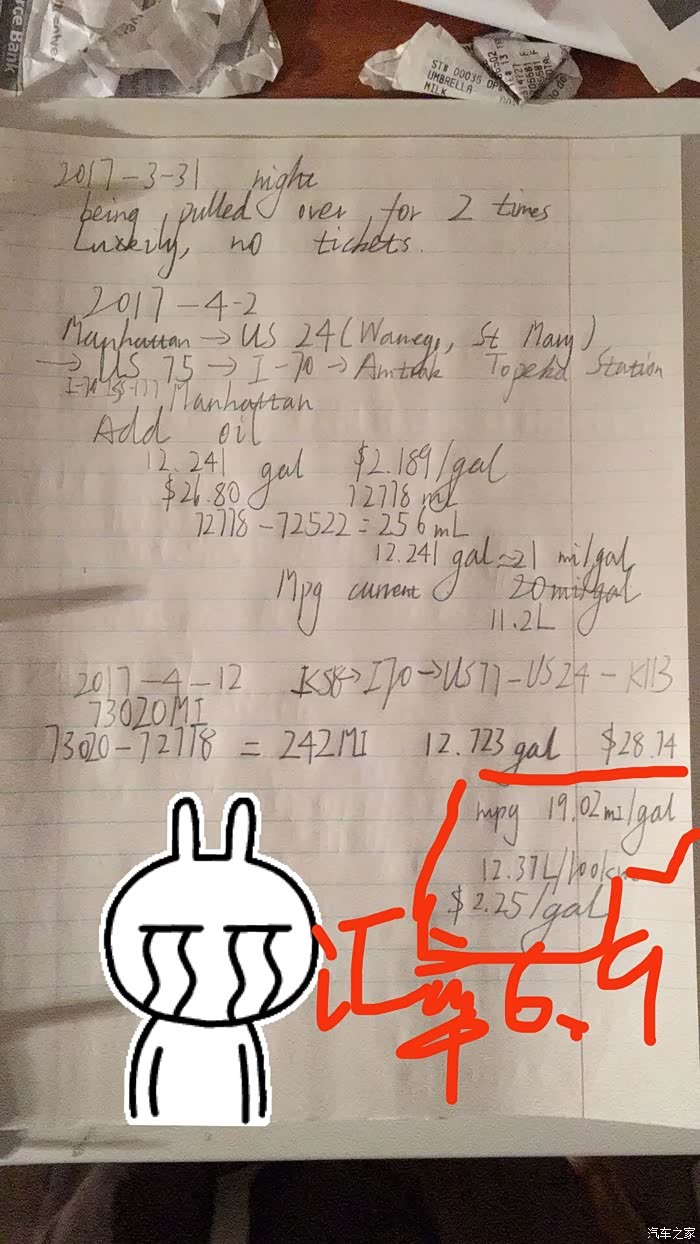 rce Bank
ST# 00035 OP
UMBRELLA
MILK
2017-3-31 night
being pulled over for 2 times
Luckily, no tickets.
2017-4-2
Manhattan → US 24 (Wamego, St Mary)
→ US 75 → I-70 → Amtrak Topeka Station
Manhattan
Add oil
12.241 gal $2.189/gal
$26.80 72778 mL
72778-72522=256mL
12.241 gal ≈21 mi/gal
Mpg current 20mi/gal
11.2L
2017-4-12 K58→I70→US77-US24-K113
73020MI
73020-72778 = 242MI 12.723gal $28.74
mpg 19.02mI/gal
12.37L/100km
$2.25/gal
汇率6.9
汽车之家